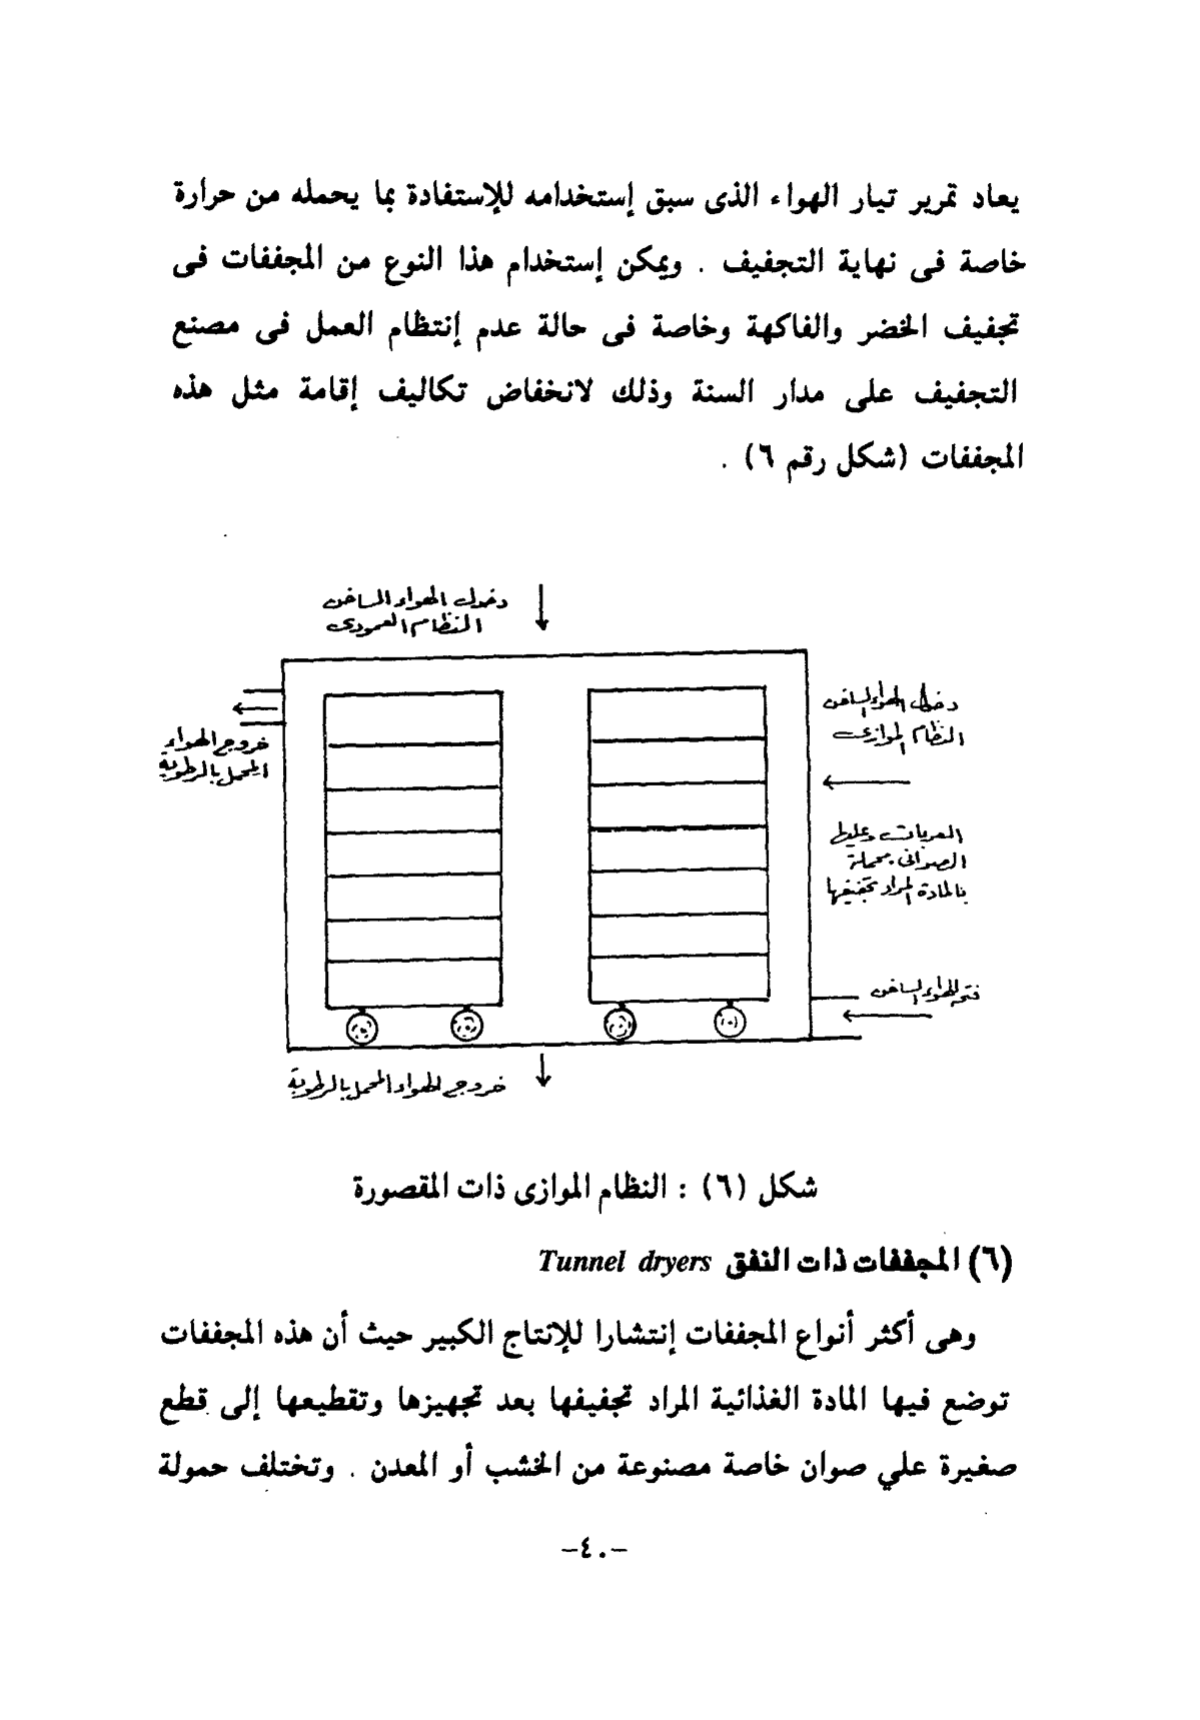 يعاد تمرير تيار الهواء الذى سبق إستخدامه للإستفادة بما يحمله من حرارة
خاصة فى نهاية التجفيف . ويمكن إستخدام هذا النوع من المجففات فى
تجفيف الخضر والفاكهة وخاصة فى حالة عدم إنتظام العمل فى مصنع
التجفيف على مدار السنة وذلك لانخفاض تكاليف إقامة مثل هذه
المجففات (شكل رقم ٦) .
دخول الهواء الساخن
النظام العمودى
دخول الهواء الساخن
النظام الموازى
خروج الهواء
المحمل بالرطوبة
العربات وعليها
الصوانى محملة
بالمادة المراد تجفيفها
الهواء الساخن
خروج الهواء المحمل بالرطوبة
شكل (٦) : النظام الموازى ذات المقصورة
(٦) المجففات ذات النفق Tunnel dryers
وهى أكثر أنواع المجففات إنتشارا للإنتاج الكبير حيث أن هذه المجففات
توضع فيها المادة الغذائية المراد تجفيفها بعد تجهيزها وتقطيعها إلى قطع
صغيرة علي صوان خاصة مصنوعة من الخشب أو المعدن . وتختلف حمولة
-٤٠-